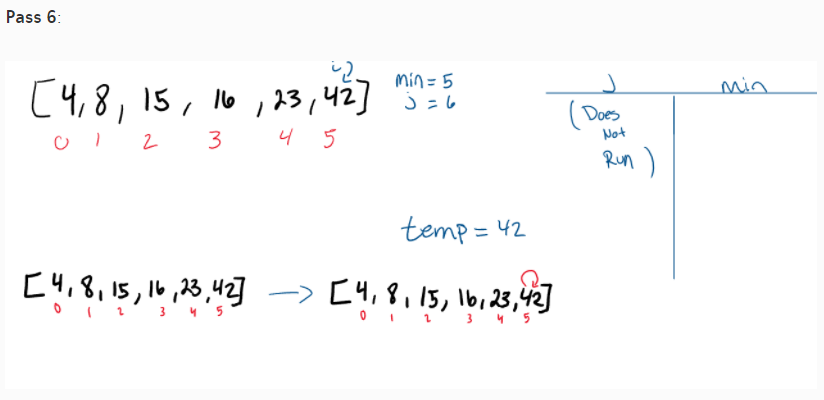 Pass 6:
i
[4, 8, 15, 16, 23, 42]
0 1 2 3 4 5
min = 5
j = 6
j min
(Does
Not
Run)
temp = 42
[4, 8, 15, 16, 23, 42] → [4, 8, 15, 16, 23, 42]
0 1 2 3 4 5 0 1 2 3 4 5